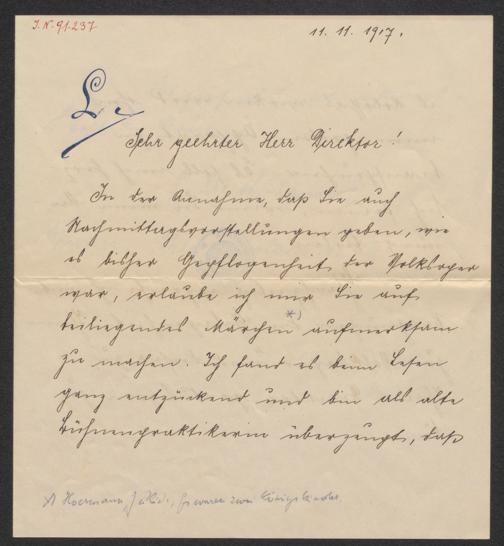 J.N. 91.237
11. 11. 1917.
L.
Sehr geehrter Herr Direktor!
In der Annahme, daß Sie auch
Nachmittagsvorstellungen geben, wie
es bisher Gepflogenheit der Volksoper
war, erlaube ich mir Sie auf
beiliegendes Märchen *) aufmerksam
zu machen. Ich fand es beim Lesen
ganz entzückend und bin als alte
Bühnenpraktikerin überzeugt, daß
Es waren zwei Königskinder.